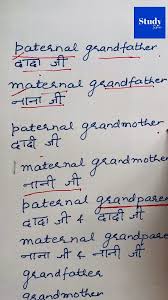 Study
paternal grandfather
दादा जी
maternal grandfather
नाना जी
paternal grandmother
दादी जी
maternal grandmother
नानी जी
paternal grandpare
दादा जी & दादी जी
maternal grandpare
नाना जी & नानी जी
grandfather
grandmother